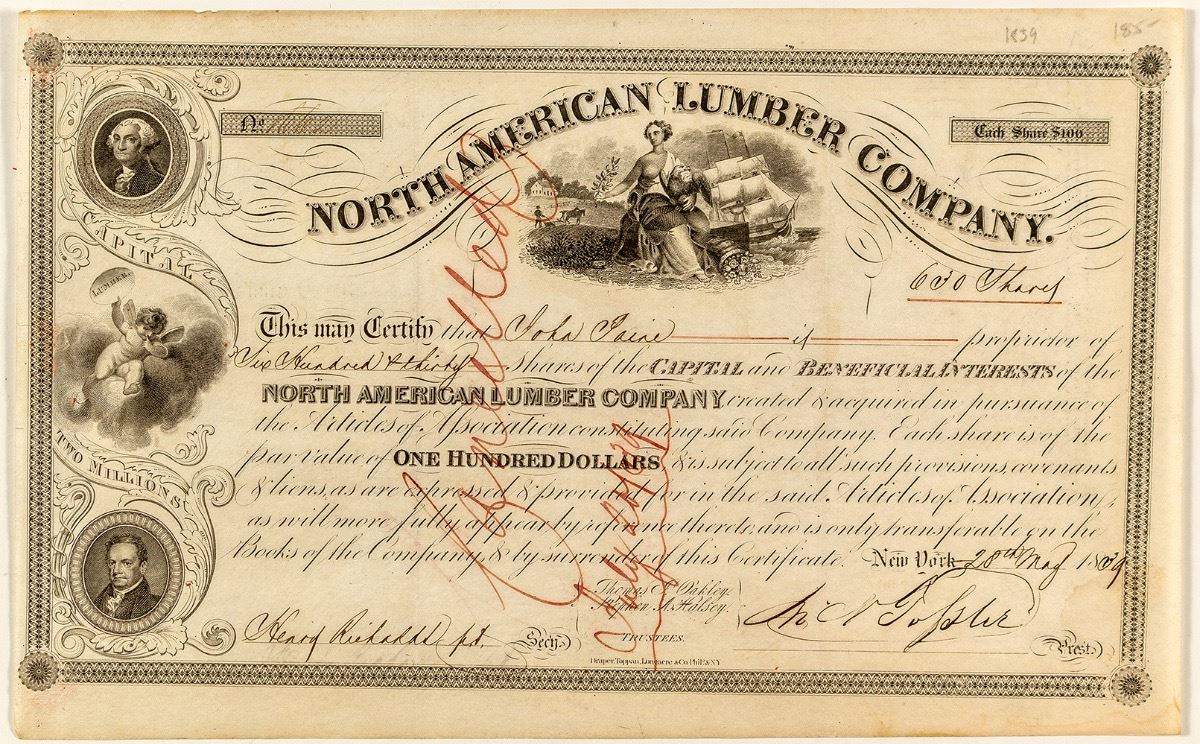 1839
No.
Each Share $100
NORTH AMERICAN LUMBER COMPANY.
CAPITAL
LUMBER
TWO MILLIONS
630 Shares
This may Certify that John Paine is proprietor of
Six Hundred & thirty Shares of the CAPITAL and BENEFICIAL INTERESTS of the
NORTH AMERICAN LUMBER COMPANY created & acquired in pursuance of
the Articles of Association constituting said Company. Each share is of the
par value of ONE HUNDRED DOLLARS & is subject to all such provisions, covenants
& liens, as are expressed & provided for in the said Articles of Association,
as will more fully appear by reference thereto, and is only transferable on the
Books of the Company, & by surrender of this Certificate. New York 28th May 1839
Thomas J. Oakley,
Stephen A. Halsey,
TRUSTEES.
Henry Richards Secy.
Prest.
Draper, Toppan, Longacre & Co. Phila. & N.Y.
Cancelled